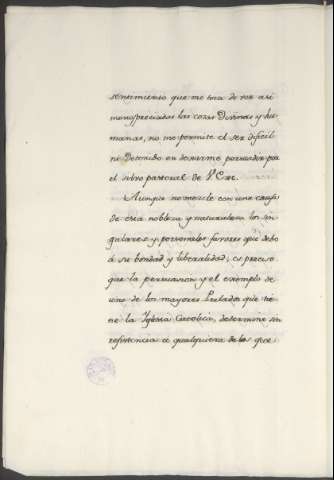 sentimiento que me toca de ver asi
menospreciadas las cosas Divinas y hu-
manas, no me permite el ser dificil
ni detenido en dexarme persuadir por
el zelo pastoral de V. Exc.
Aunque no mezcle con una causa
de esta nobleza y naturaleza los sin-
gulares y personales favores que debo
á su bondad y liberalidad, es preciso
que la persuasion y el exemplo de
uno de los mayores Prelados que tie-
ne la Yglesia Catolica, determine sin
resistencia á qualquiera de los que